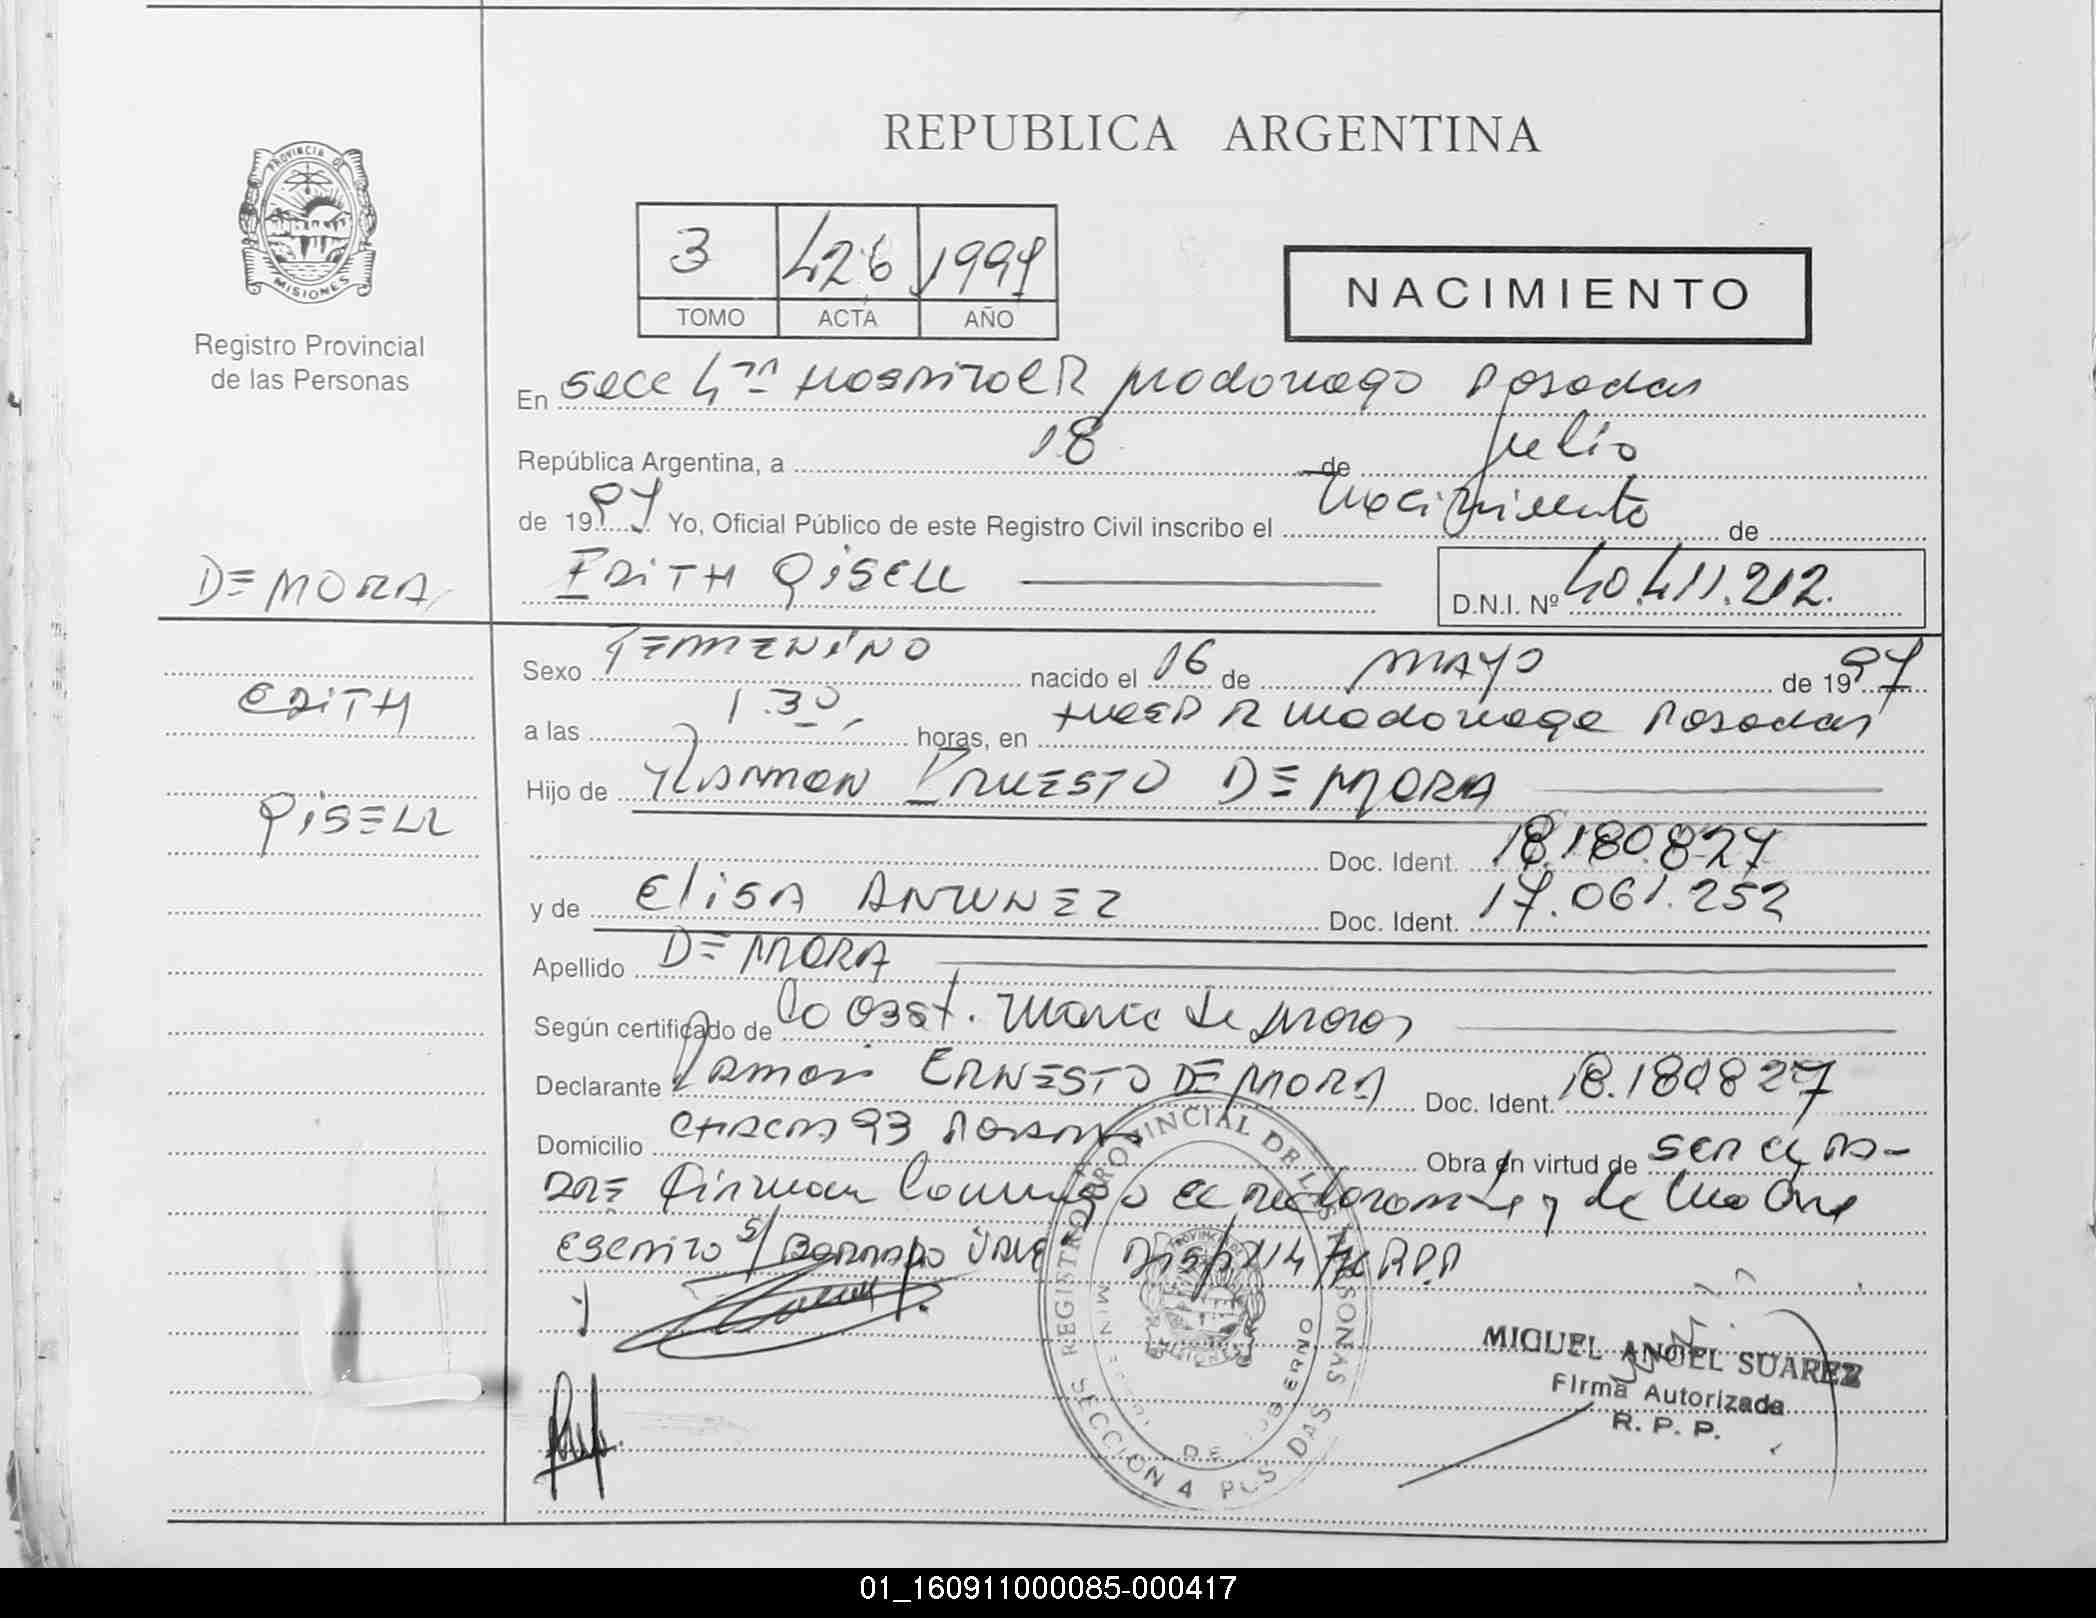 REPUBLICA ARGENTINA
PROVINCIA DE
MISIONES
Registro Provincial
de las Personas
3 426 1997
TOMO ACTA AÑO
NACIMIENTO
En Secc 4ta Hospital R Madariaga Posadas
República Argentina, a 18 de Julio
de 1997 Yo, Oficial Público de este Registro Civil inscribo el Nacimiento de
DE MORA, EDITH GISELL D.N.I. Nº 40.411.212.
EDITH
GISELL
Sexo FEMENINO nacido el 16 de MAYO de 1997
a las 1.30, horas, en R Madariaga Posadas
Hijo de RAMON ERNESTO DE MORA
Doc. Ident. 18.180.827
y de ELISA ANTUNEZ Doc. Ident. 17.061.252
Apellido DE MORA
Según certificado de la Obst. de
Declarante Ramon ERNESTO DE MORA Doc. Ident. 18.180827
Domicilio CHACRA 93 POSADAS Obra en virtud de SER EL PA-
DRE Firman Conmigo el declarante y de
ESCRITO S/ BORRADO VALE
REGISTRO PROVINCIAL DE LAS PERSONAS
SECCION 4 POSADAS
DE GOBIERNO
MIGUEL ANGEL SUAREZ
Firma Autorizada
R. P. P.
01_160911000085-000417